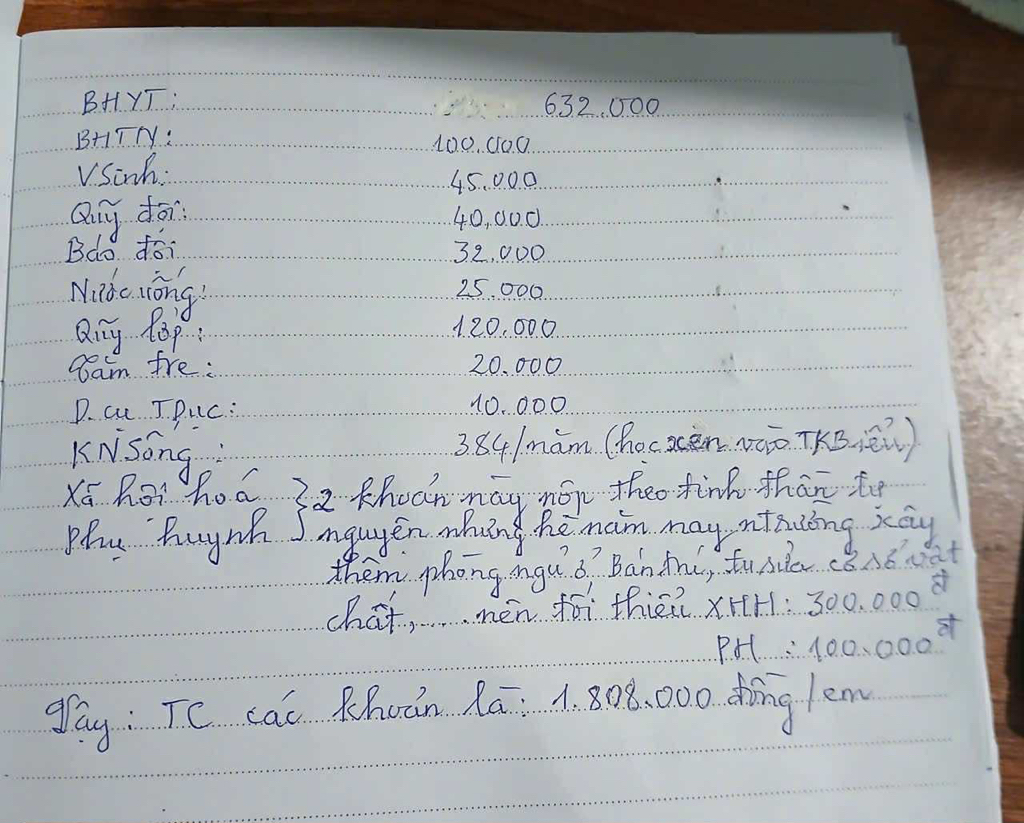 BHYT: 632.000
BHTN: 100.000
VSinh: 45.000
Quỹ đội: 40.000
Báo đội 32.000
Nước uống: 25.000
Quỹ lớp: 120.000
Tăm tre: 20.000
D. cụ TDục: 10.000
KN Sống: 384/năm (học xen vào TKBiểu)
Xã hội hoá } 2 khoản này nộp theo tinh thần tự
Phụ huynh nguyện nhưng hè năm nay ntrường xây
thêm phòng ngủ ở Bán trú, tu sửa cơ sở vật
chất,.... nên tối thiểu XHH: 300.000đ
PH : 100.000đ
Vậy: TC các khoản là: 1.808.000 đồng/em